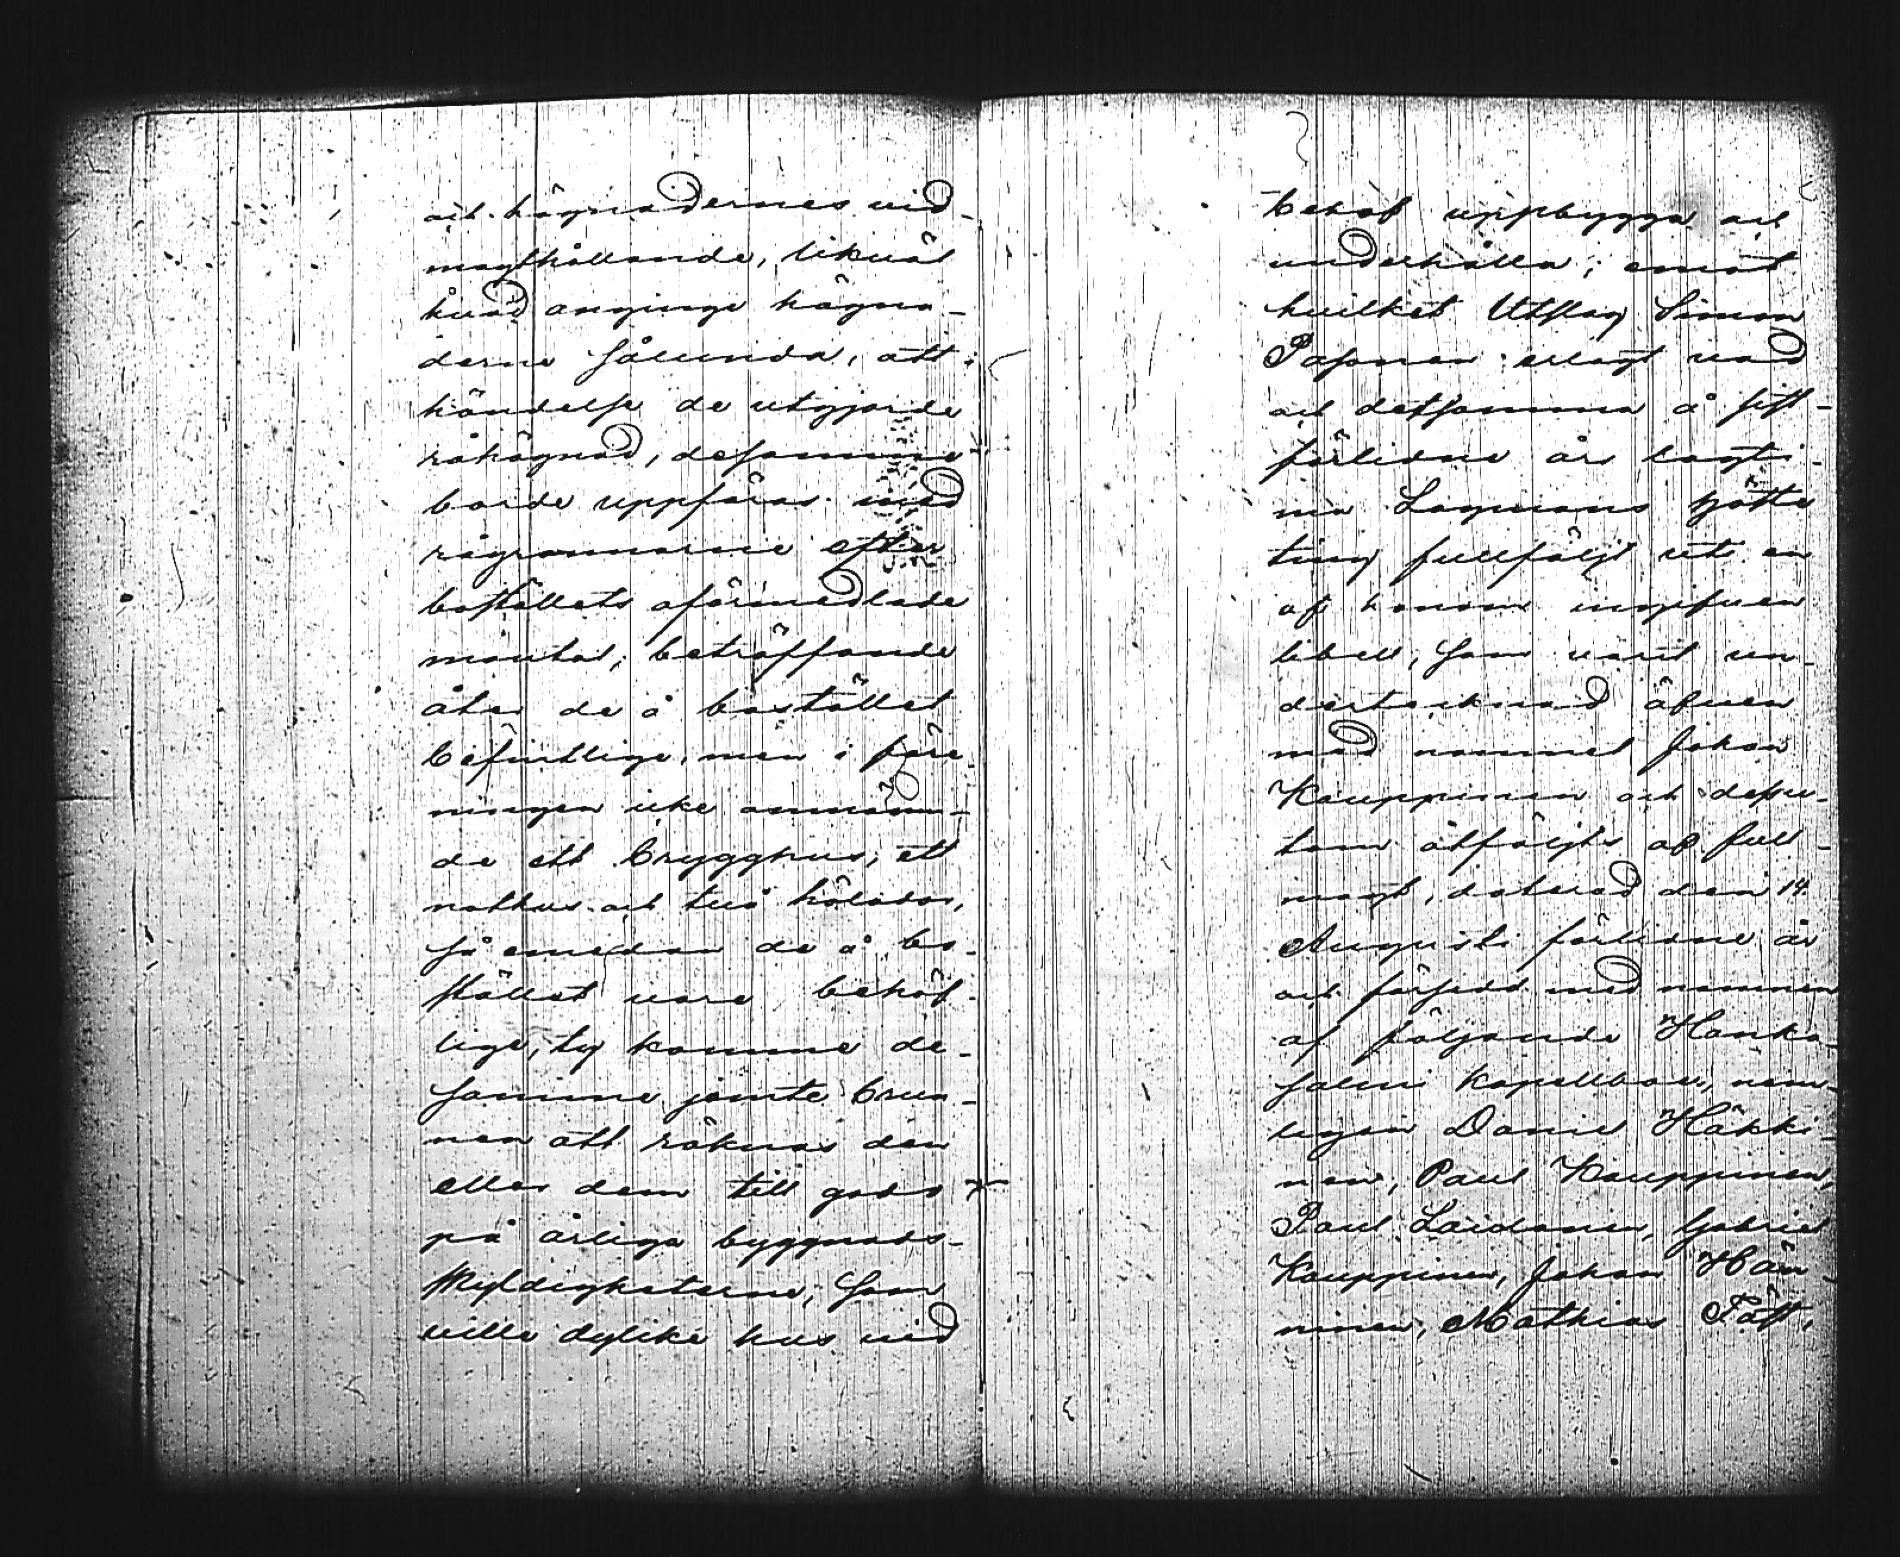 och hägnadernes vid-
magthållande, likväl
hvad anginge hägna-
derne sålunda, att i
händelse de utgjorde
råhägnad, desamme
borde uppföras med
rågrannarne efter
boställets oförmedlade
mantal; beträffande
åter de å bostället
befintlige, men i före-
ningen icke omnämn-
de ett brygghus, ett
nothus och två hölador,
så emedan de å bo-
stället vore behöf-
lige, ty komme de-
samme jemte brun-
nen att räknas den
eller dem till godo
på årliga byggnads-
skyldigheterne, som
ville dylike hus vid
behof uppbygga och
underhålla; emot
hvilket Utslag Simon
Pasonen erlagt vad
och detsamma å sist-
förlidne års lagti-
ma Lagmans
ting fullföljt uti en
af honom ingifven
libell, som varit un-
dertecknad äfven
med namnet Johan
Kauppinen och dess-
utom åtföljts af full-
magt, daterad den 14
Augusti förlidne år
och försedd med namnen
af följande Hanka-
salmi Kapellboer, nem-
ligen Daniel Häkki-
nen, Paul Kauppinen,
Paul Laidonen, Gabriel
Kauppinen, Johan Hän-
ninen, Mathias